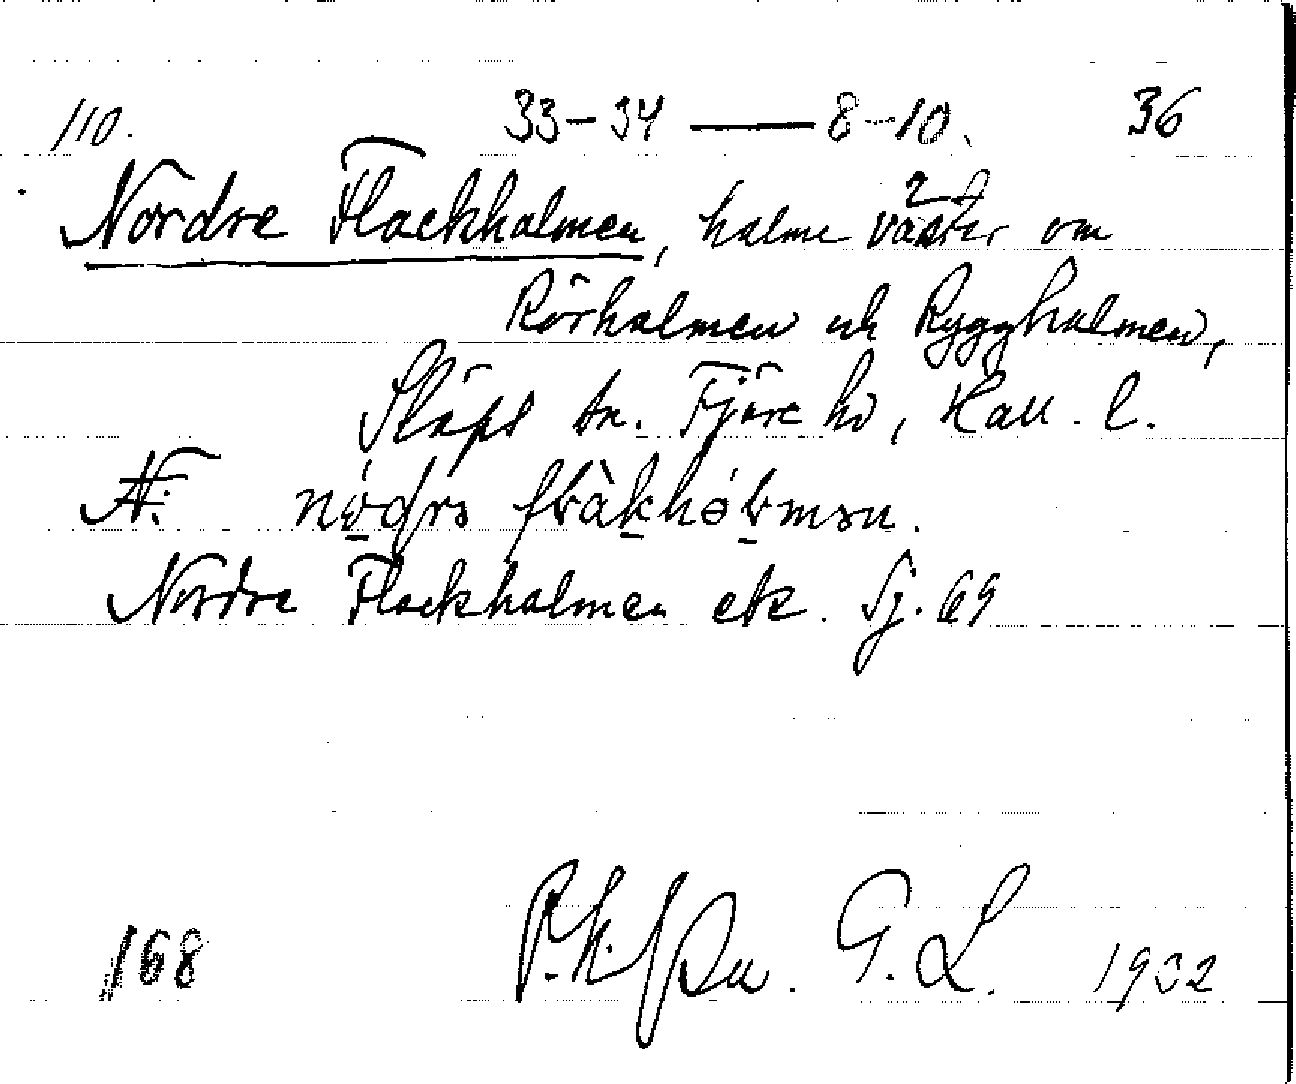 110. 33–34 — 8–10. 36
Nordre Flackholmen, holme väster om
Rörholmen och Rygghholmen,
Släps sn. Fjäre hd, Hall. l.
nǫ́drə
Nordre Flackholmen ek. Sj. 69
168 G. L. 1932